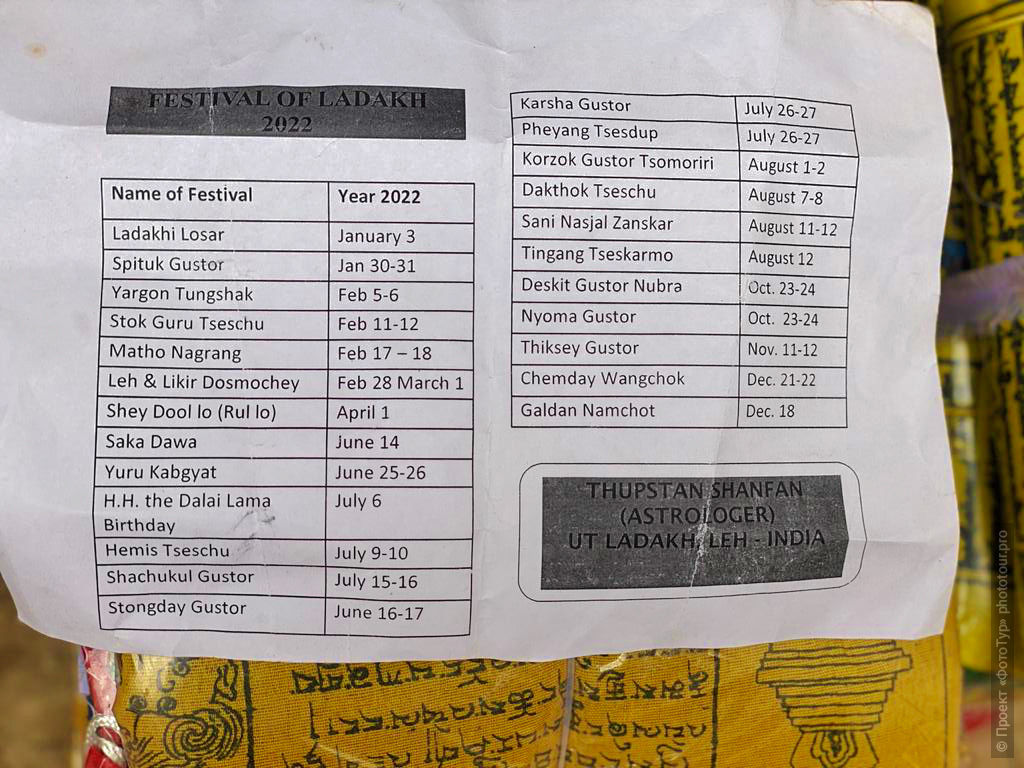 FESTIVAL OF LADAKH
2022
Name of Festival Year 2022
Ladakhi Losar January 3
Spituk Gustor Jan 30-31
Yargon Tungshak Feb 5-6
Stok Guru Tseschu Feb 11-12
Matho Nagrang Feb 17 – 18
Leh & Likir Dosmochey Feb 28 March 1
Shey Dool lo (Rul lo) April 1
Saka Dawa June 14
Yuru Kabgyat June 25-26
H.H. the Dalai Lama July 6
Birthday
Hemis Tseschu July 9-10
Shachukul Gustor July 15-16
Stongday Gustor June 16-17
Karsha Gustor July 26-27
Pheyang Tsesdup July 26-27
Korzok Gustor Tsomoriri August 1-2
Dakthok Tseschu August 7-8
Sani Nasjal Zanskar August 11-12
Tingang Tseskarmo August 12
Deskit Gustor Nubra Oct. 23-24
Nyoma Gustor Oct. 23-24
Thiksey Gustor Nov. 11-12
Chemday Wangchok Dec. 21-22
Galdan Namchot Dec. 18
THUPSTAN SHANFAN
(ASTROLOGER)
UT LADAKH, LEH - INDIA
© Проект «ФотоТур» phototour.pro